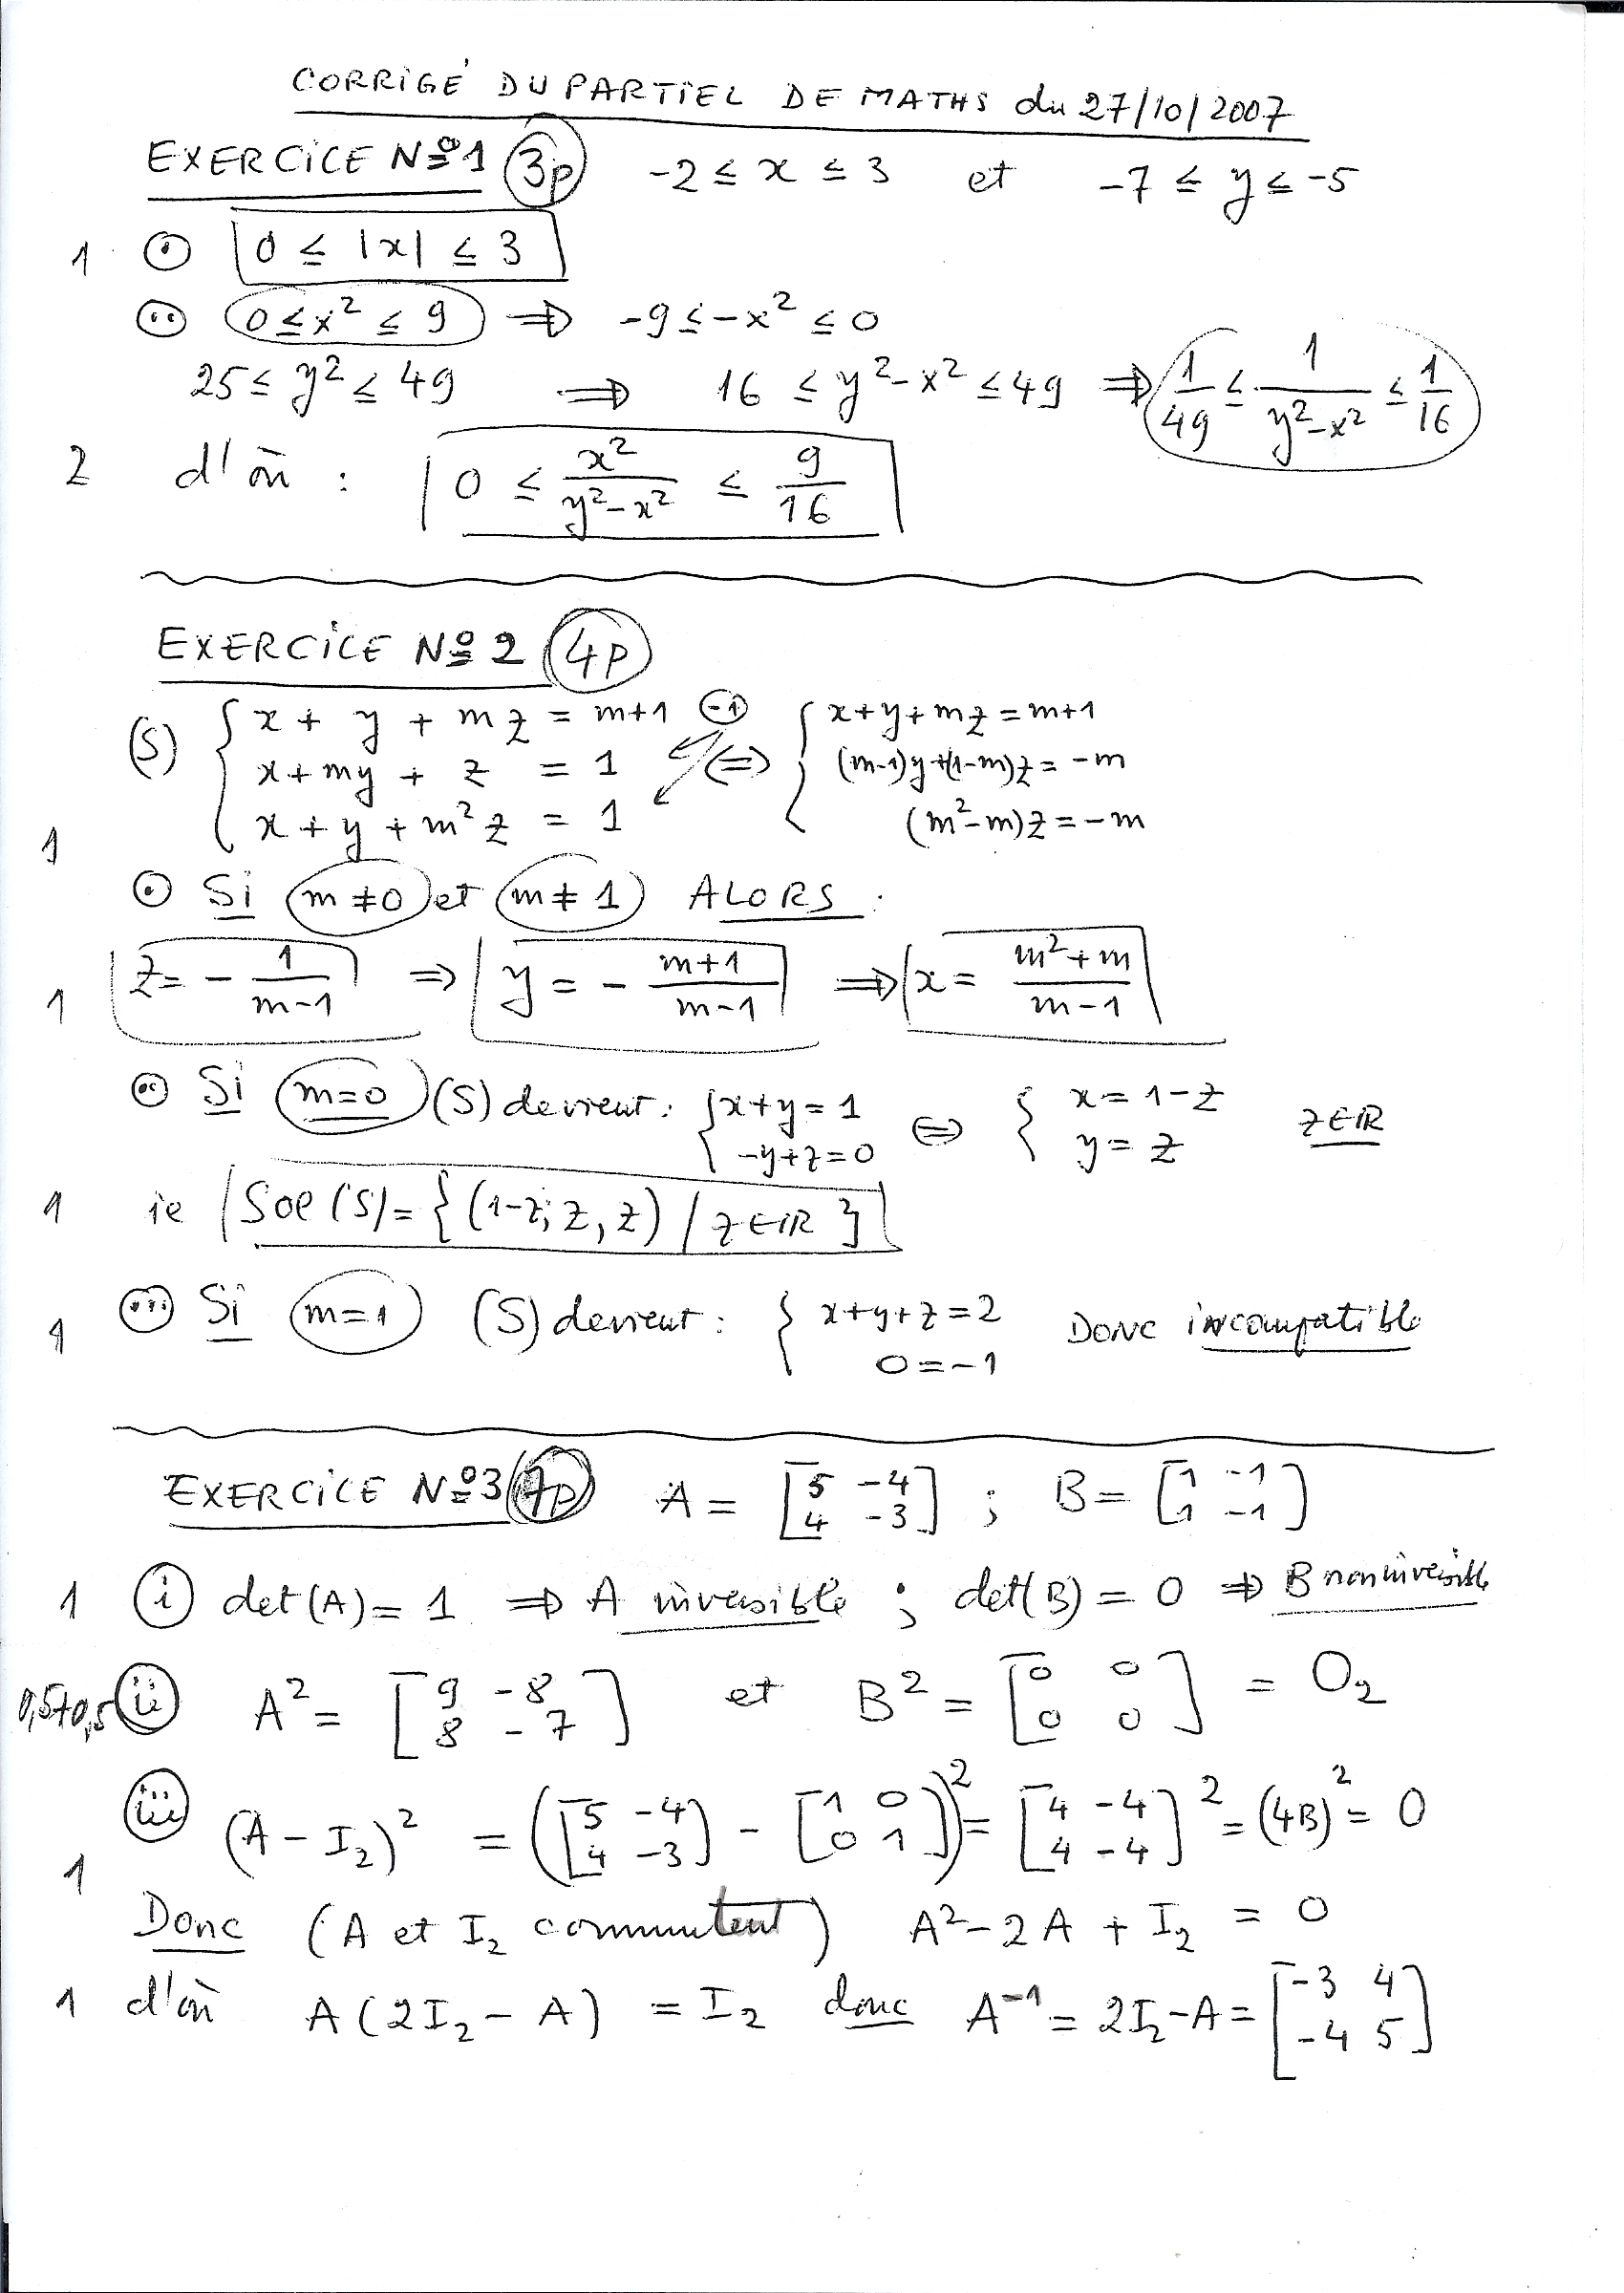 CORRIGÉ DU PARTIEL DE MATHS du 27/10/2007
EXERCICE Nº1 (3p) -2 ≤ x ≤ 3 et -7 ≤ y ≤ -5
1 (i) 0 ≤ |x| ≤ 3
(ii) 0 ≤ x² ≤ 9 ⇒ -9 ≤ -x² ≤ 0
25 ≤ y² ≤ 49 ⇒ 16 ≤ y²-x² ≤ 49 ⇒ 1/49 ≤ 1/(y²-x²) ≤ 1/16
2 d'où : 0 ≤ x²/(y²-x²) ≤ 9/16
EXERCICE Nº2 (4p)
(S) { x + y + mz = m+1 (-1) ⇔ { x+y+mz = m+1
x + my + z = 1 (m-1)y+(1-m)z = -m
1 x + y + m²z = 1 (m²-m)z = -m
(i) Si (m ≠ 0) et (m ≠ 1) ALORS :
1 z = - 1/(m-1) ⇒ y = - (m+1)/(m-1) ⇒ x = (m²+m)/(m-1)
(ii) Si (m=0) (S) devient : { x+y=1 ⇔ { x = 1-z z∈ℝ
-y+z=0 y = z
1 ie Sol(S) = {(1-z; z, z) / z∈ℝ}
1 (iii) Si (m=1) (S) devient : { x+y+z=2 DONC incompatible
0 = -1
EXERCICE Nº3 (7p) A = [5 -4 ; 4 -3] ; B = [1 -1 ; 1 -1]
1 (i) det(A) = 1 ⇒ A inversible ; det(B) = 0 ⇒ B non inversible
0,5+0,5 (ii) A² = [9 -8 ; 8 -7] et B² = [0 0 ; 0 0] = O₂
(iii) (A - I₂)² = ([5 -4 ; 4 -3] - [1 0 ; 0 1])² = [4 -4 ; 4 -4]² = (4B)² = 0
1
Donc (A et I₂ commutent) A² - 2A + I₂ = 0
1 d'où A(2I₂ - A) = I₂ donc A⁻¹ = 2I₂-A = [-3 4 ; -4 5]